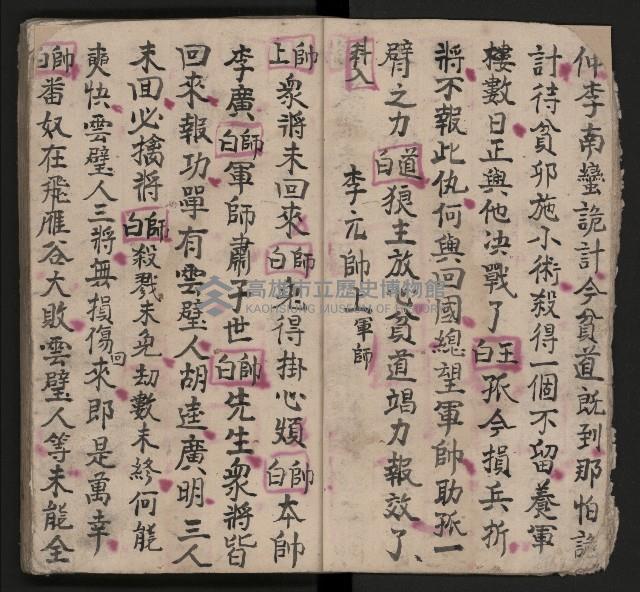 仲李南蠻詭計今貧道既到那怕詭
計待貧卯施小術殺得一個不留養軍
樓數日正與他决戰了 王白 孤今損兵折
將不報此仇何興回國總望軍帥助孤一
臂之力 道白 狼主放心貧道竭力報效了
科入　李元帥上軍師
帥上 衆將未回來 師白 老得掛心煩 帥白 本帥
李廣 師白 軍師肅子世 帥白 先生衆將皆
回來報功單有雲璧人胡逵廣明三人
未回必擒將 師白 殺戮未免劫數未終何能
爽快雲璧人三將無損傷回來即是萬幸
帥白 番奴在飛雁谷大敗雲璧人等未能全
高雄市立歷史博物館
KAOHSIUNG MUSEUM OF HISTORY